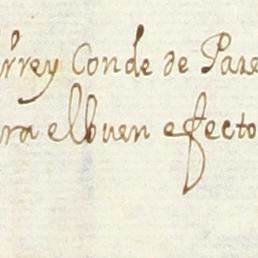 rrey Conde de Pare
ra el buen efecto